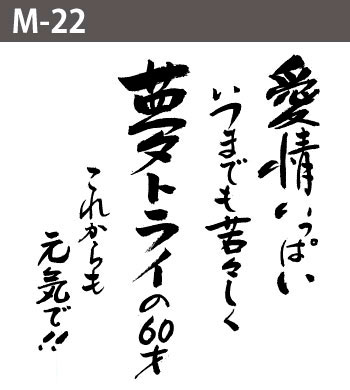 M-22
愛情いっぱい
いつまでも若々しく
夢トライの60才
これからも
元気で!!